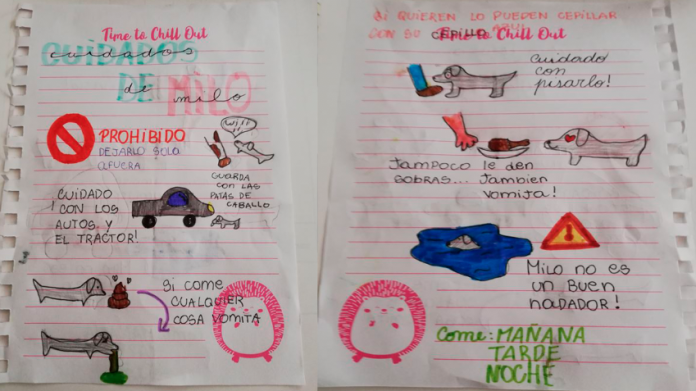 Time to Chill Out
CUIDADOS
cuidados
DE MILO
de milo
PROHIBIDO
DEJARLO SOLO
AFUERA
GUARDA
CON LAS
PATAS DE
CABALLO
¡CUIDADO
CON LOS
AUTOS, Y
EL TRACTOR!
Si come
CUALQUIER
COSA VOMITA
SI QUIEREN LO PUEDEN CEPILLAR
CON SU CEPILLO AZUL
Time to Chill Out
Cuidado
con
pisarlo!
TAMPOCO le den
SOBRAS... Tambien
vomita!
Milo no es
un Buen
nadador!
Come: MAÑANA
TARDE
NOCHE